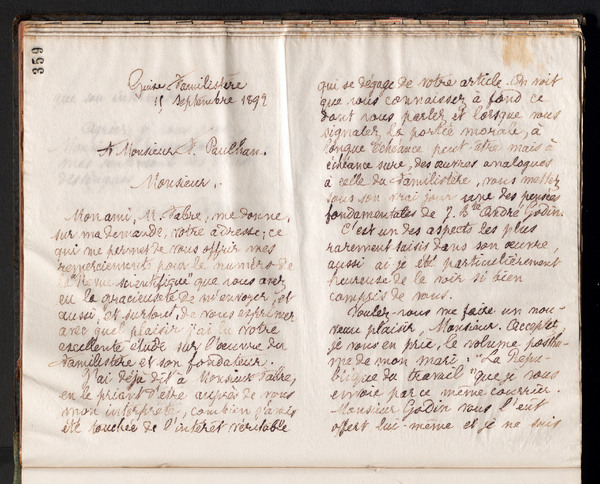 359
Guise Familistère
15 Septembre 1892
A Monsieur F. Paulhan.
Monsieur,
Mon ami, M. Fabre, me donne,
sur ma demande, votre adresse; ce
qui me permet de vous offrir mes
remerciements pour le numéro de
la Revue scientifique que vous avez
eu la gracieuseté de m'envoyer, et
aussi, et surtout, de vous exprimer
avec quel plaisir j'ai lu votre
excellente étude sur l'œuvre du
Familistère et son fondateur.
J'ai déjà dit à Monsieur Fabre,
en le priant d'être auprès de vous
mon interprète, combien j'avais
été touchée de l'intérêt véritable
qui se dégage de votre article. On voit
que vous connaissez à fond ce
dont vous parlez et lorsque vous
signalez la portée morale, à
longue échéance peut-être mais à
échéance sure, des œuvres analogues
à celle du Familistère, vous mettez
sous son vrai jour une des pensées
fondamentales de J. Bte André Godin.
C'est un des aspects les plus
rarement saisis dans son œuvre,
aussi ai-je été particulièrement
heureuse de le voir si bien
compris de vous.
Voulez-vous me faire un nou-
veau plaisir, Monsieur. Acceptez,
je vous en prie, le volume posthu-
me de mon mari: "La Répu-
blique du travail" que je vous
envoie par ce même courrier.
Monsieur Godin vous l'eût
offert lui-même et je ne suis